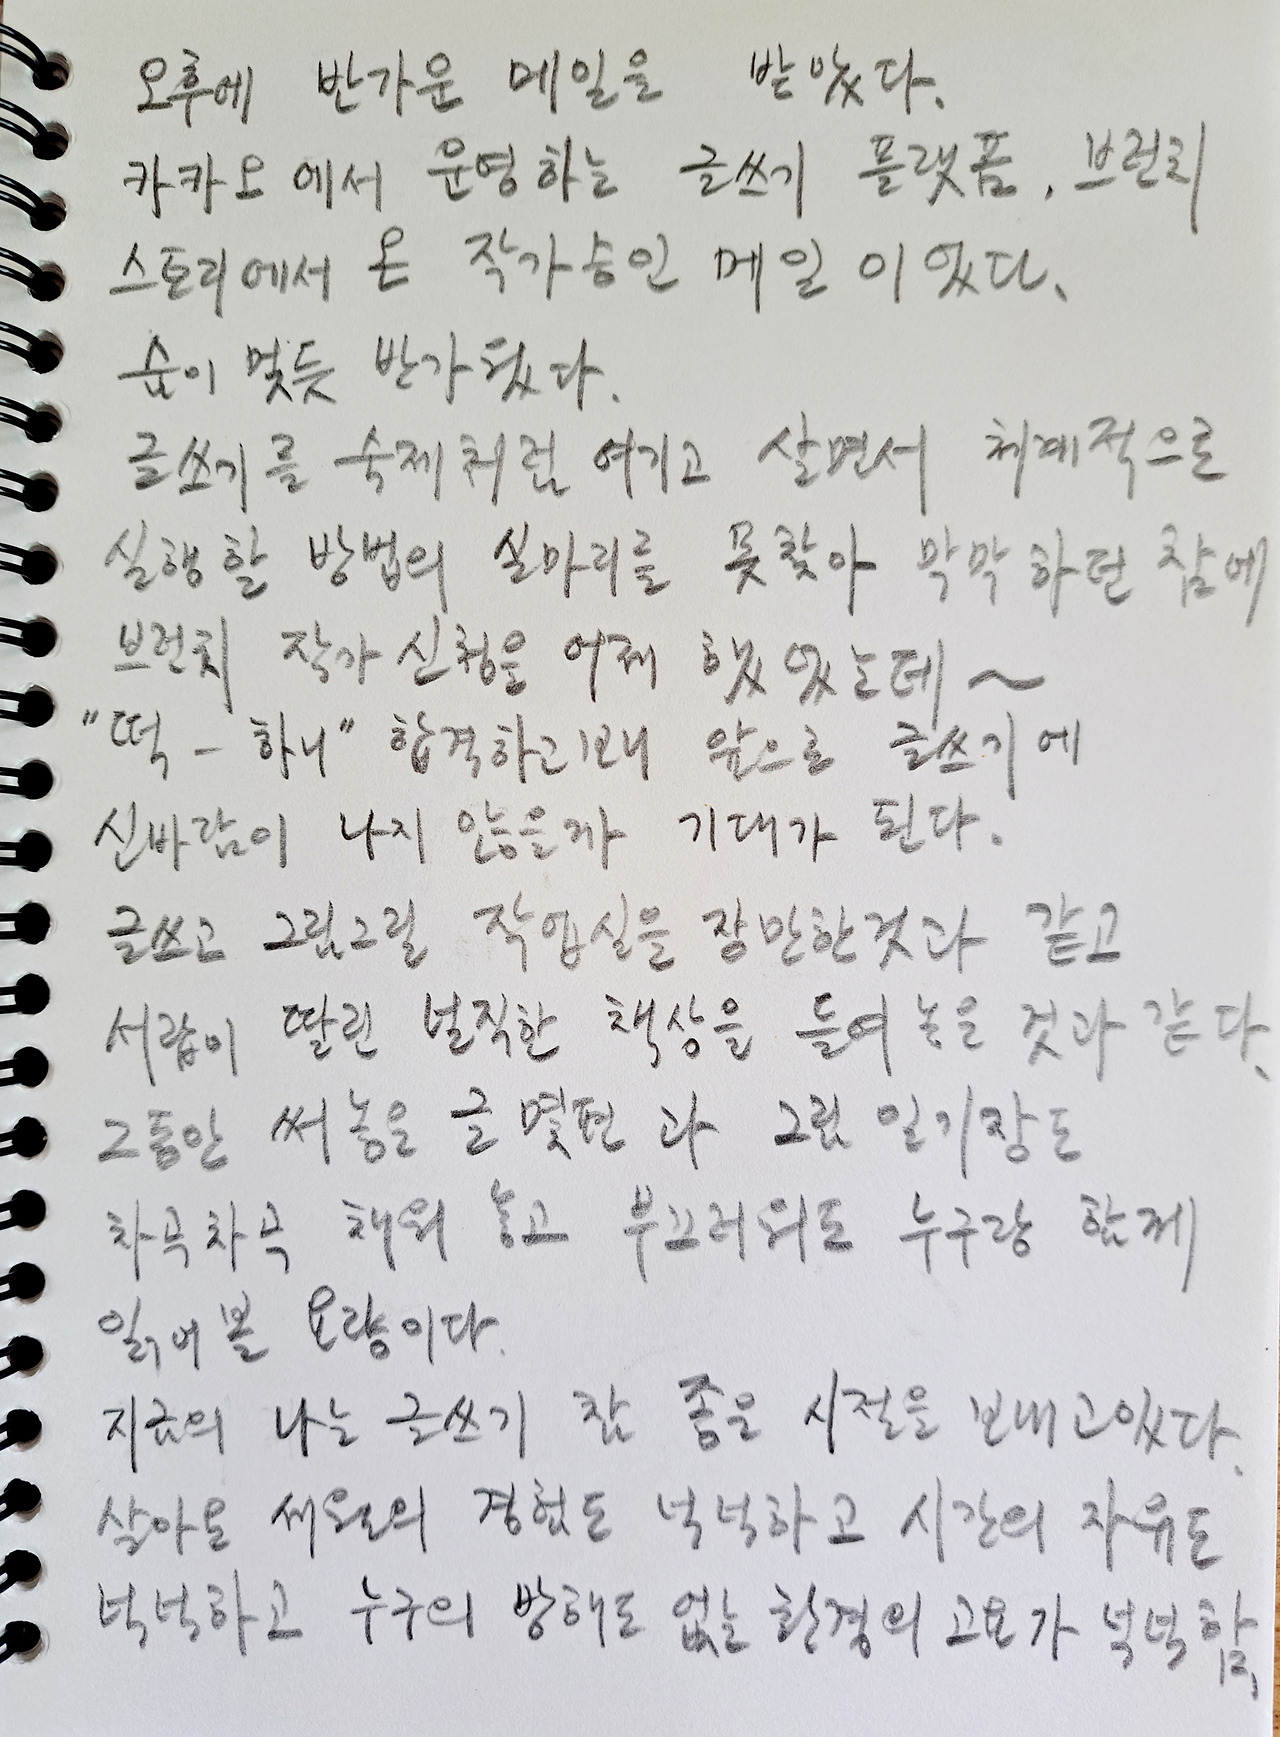 오후에 반가운 메일을 받았다.
카카오에서 운영하는 글쓰기 플랫폼, 브런치
스토리에서 온 작가승인 메일이었다.
숨이 멎듯 반가웠다.
글쓰기를 숙제처럼 여기고 살면서 체계적으로
실행할 방법의 실마리를 못찾아 막막하던 참에
브런치 작가신청을 어제 했었는데~
"떡-하니" 합격하고보니 앞으로 글쓰기에
신바람이 나지 않을까 기대가 된다.
글쓰고 그림그릴 작업실을 장만한것과 같고
서랍이 딸린 널직한 책상을 들여 놓은 것과 같다.
그동안 써놓은 글 몇편과 그림 일기장도
차곡차곡 채워 놓고 부끄러워도 누구랑 함께
읽어볼 요량이다.
지금의 나는 글쓰기 참 좋은 시절을 보내고있다.
살아온 세월의 경험도 넉넉하고 시간의 자유도
넉넉하고 누구의 방해도 없는 환경의 고요가 넉넉함,